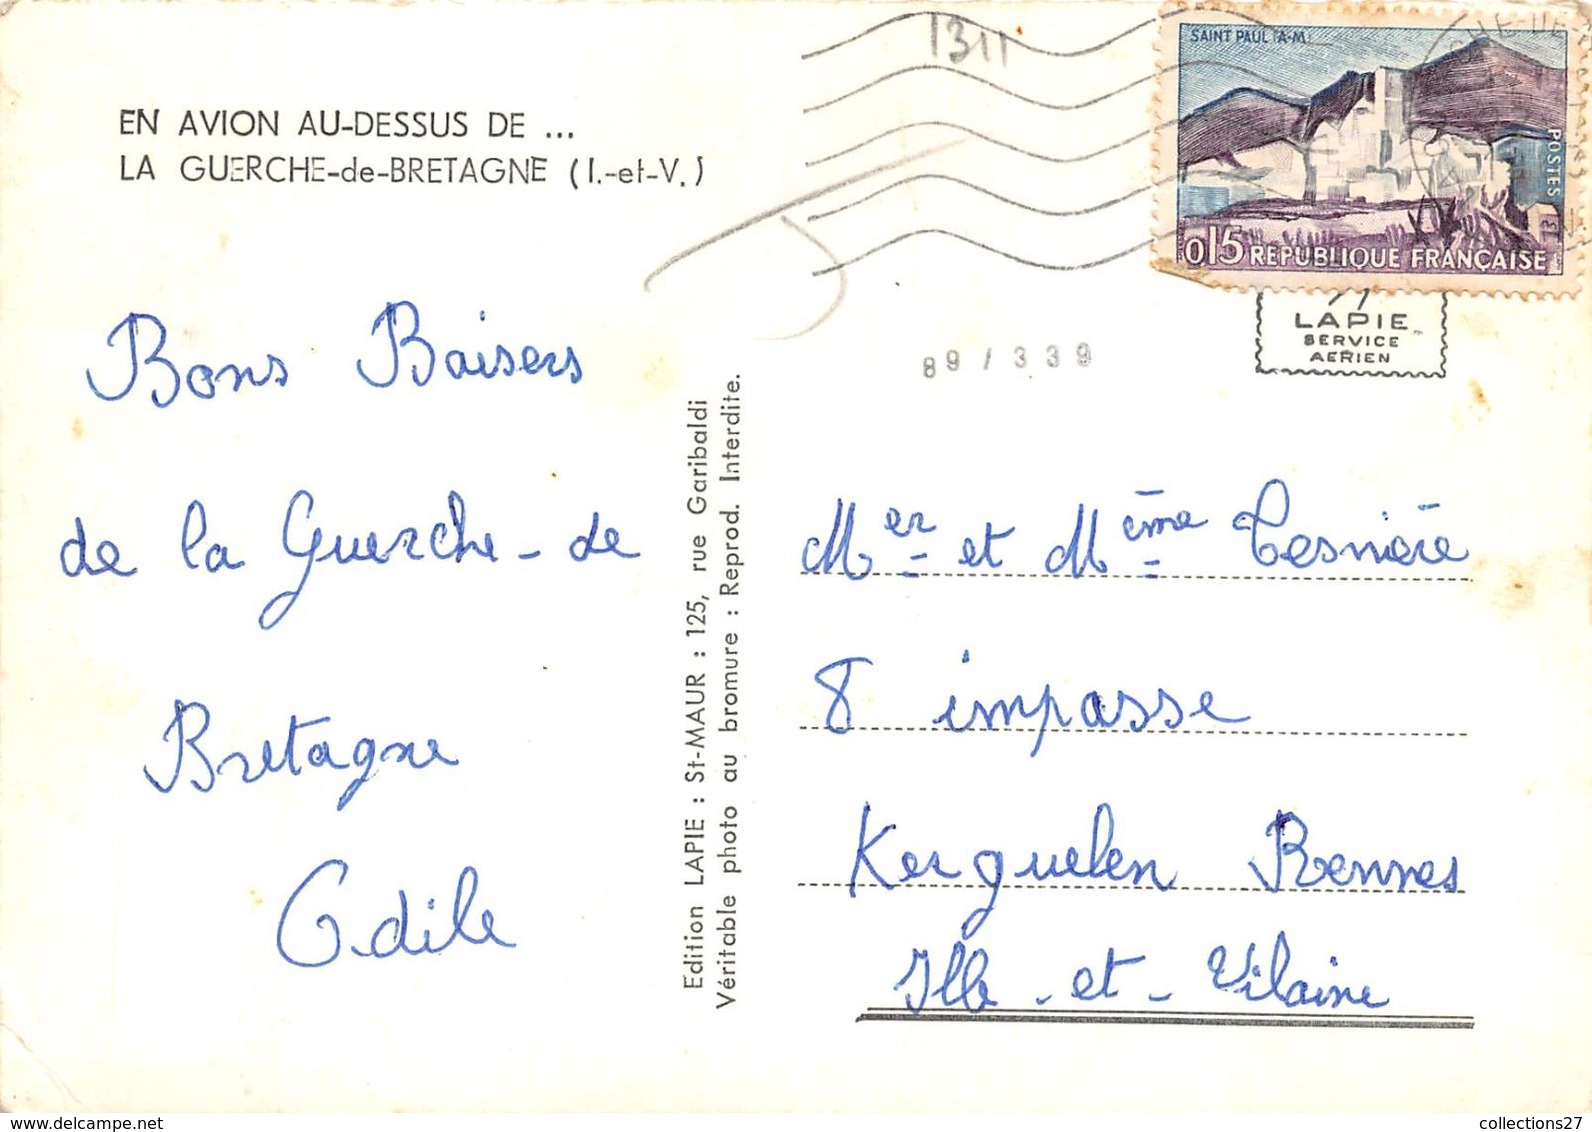 1311
SAINT PAUL (A-M)
POSTES
0,15 RÉPUBLIQUE FRANÇAISE
EN AVION AU-DESSUS DE ...
LA GUERCHE-de-BRETAGNE (I.-et-V.)
LAPIE
SERVICE
AERIEN
89 / 339
Bons Baisers
de la Guerche-de
Bretagne
Odile
Edition LAPIE : St-MAUR : 125, rue Garibaldi
Véritable photo au bromure : Reprod. Interdite.
Mer et Mème Tesnière
8 impasse
Kerguelen Rennes
Ille-et-Vilaine
collections27